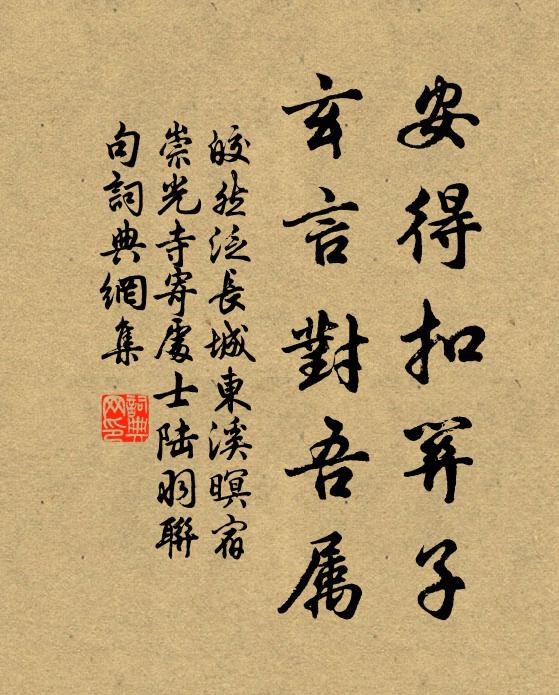 安得扣關子
玄言對吾属
皎然泛長城東溪暝宿
崇光寺寄處士陆羽聯
句詞典網集
詞典
网印